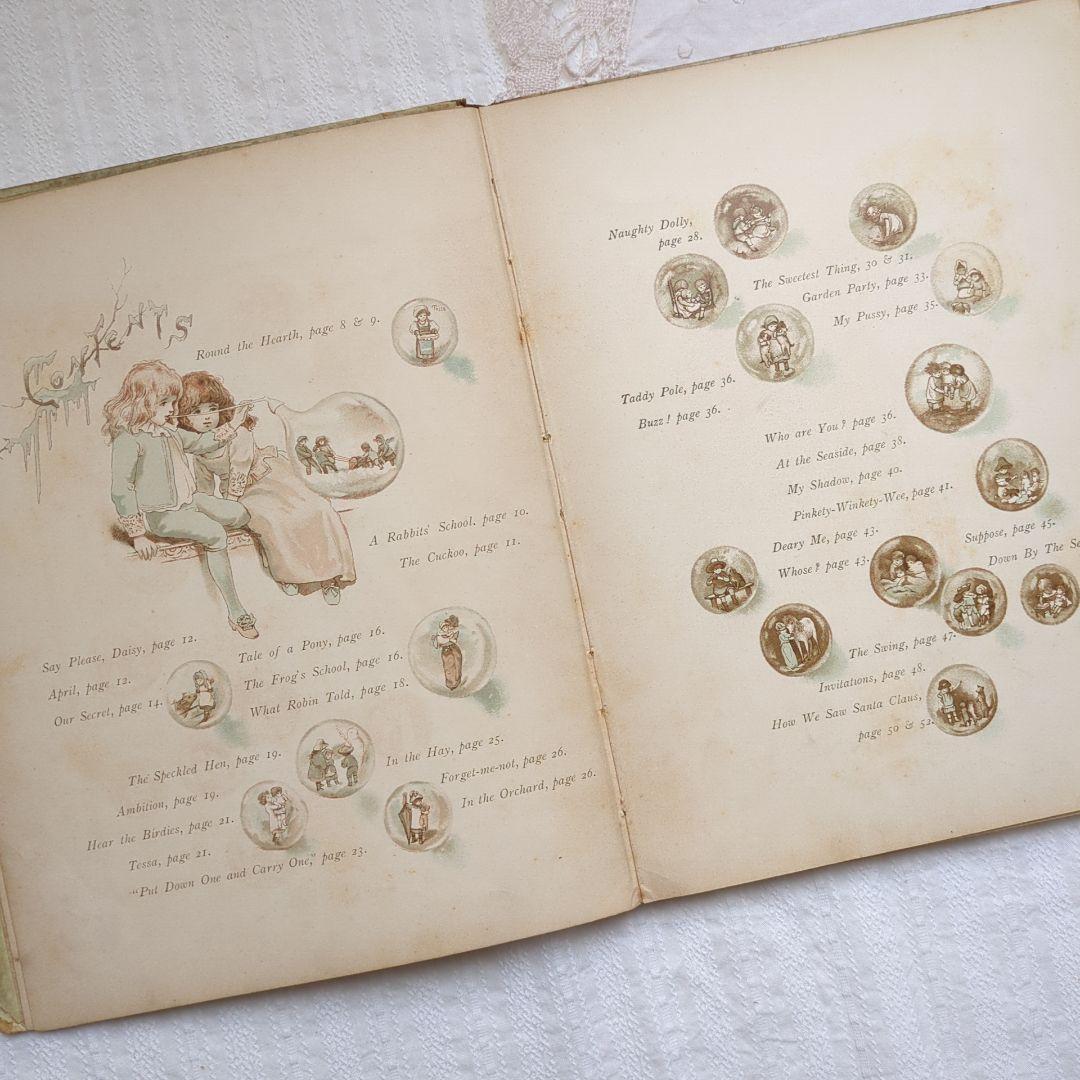 Contents
Round the Hearth, page 8 & 9.
Tessa
A Rabbits' School. page 10.
The Cuckoo, page 11.
Say Please, Daisy, page 12.
April, page 12.
Our Secret, page 14.
Tale of a Pony, page 16.
The Frog's School, page 16.
What Robin Told, page 18.
The Speckled Hen, page 19.
Ambition, page 19.
Hear the Birdies, page 21.
Tessa, page 21.
"Put Down One and Carry One," page 23.
In the Hay, page 25.
Forget-me-not, page 26.
In the Orchard, page 26.
Naughty Dolly,
page 28.
The Sweetest Thing, 30 & 31.
Garden Party, page 33.
My Pussy, page 35.
Taddy Pole, page 36.
Buzz! page 36.
Who are You? page 36.
At the Seaside, page 38.
My Shadow, page 40.
Pinkety-Winkety-Wee, page 41.
Deary Me, page 43.
Whose? page 43.
Suppose, page 45.
Down By The
The Swing, page 47.
Invitations, page 48.
How We Saw Santa Claus,
page 50 & 52.